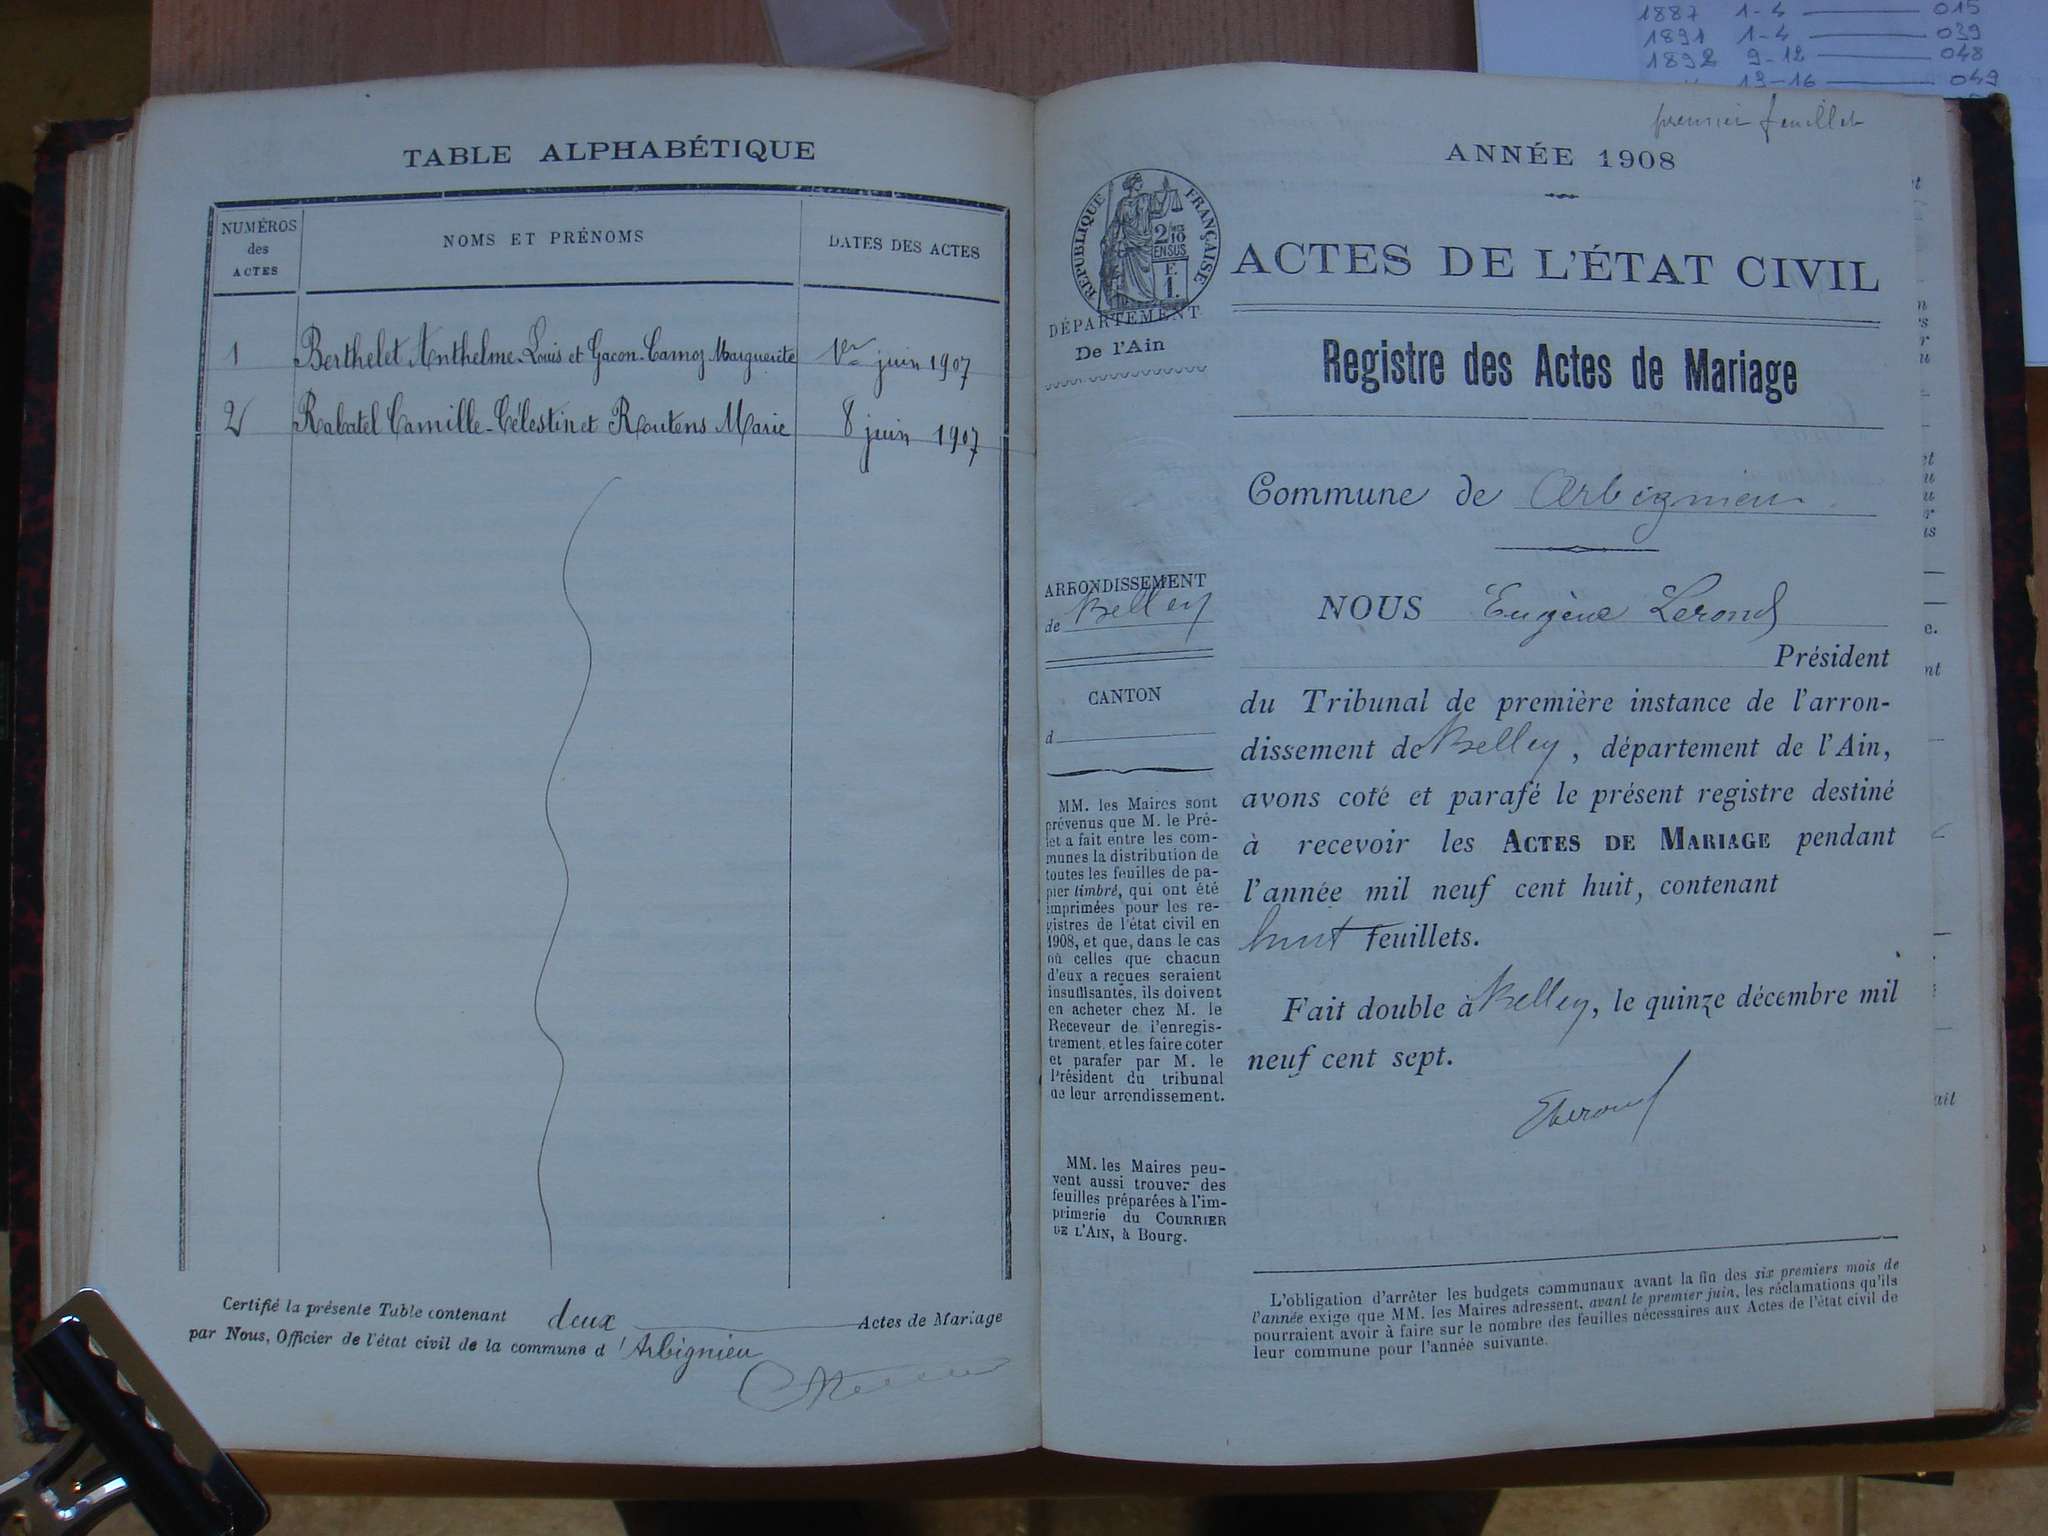 1887 1-4 015
1891 1-4 039
1892 9-12 048
13-16 049
TABLE ALPHABÉTIQUE
NUMÉROS des ACTES
NOMS ET PRÉNOMS
DATES DES ACTES
1 Berthelet Anthelme-Louis et Gacon-Camoz Marguerite 1er juin 1907
2 Rabatel Camille-Célestin et Routens Marie 8 juin 1907
Certifié la présente Table contenant deux Actes de Mariage
par Nous, Officier de l'état civil de la commune d'Arbignieu
premier feuillet
ANNÉE 1908
RÉPUBLIQUE FRANÇAISE
DÉPARTEMENT
De l'Ain
ACTES DE L'ÉTAT CIVIL
Registre des Actes de Mariage
Commune de Arbignieu
ARRONDISSEMENT
de Belley
CANTON
d
MM. les Maires sont
prévenus que M. le Pré-
fet a fait entre les com-
munes la distribution de
toutes les feuilles de pa-
pier timbré, qui ont été
imprimées pour les re-
gistres de l'état civil en
1908, et que, dans le cas
où celles que chacun
d'eux a reçues seraient
insuffisantes, ils doivent
en acheter chez M. le
Receveur de l'enregis-
trement, et les faire coter
et parafer par M. le
Président du tribunal
de leur arrondissement.
MM. les Maires peu-
vent aussi trouver des
feuilles préparées à l'im-
primerie du COURRIER
DE L'AIN, à Bourg.
NOUS Eugène Lerond
Président
du Tribunal de première instance de l'arron-
dissement de Belley, département de l'Ain,
avons coté et parafé le présent registre destiné
à recevoir les ACTES DE MARIAGE pendant
l'année mil neuf cent huit, contenant
huit feuillets.
Fait double à Belley, le quinze décembre mil
neuf cent sept.
ELerond
L'obligation d'arrêter les budgets communaux avant la fin des six premiers mois de
l'année exige que MM. les Maires adressent, avant le premier juin, les réclamations qu'ils
pourraient avoir à faire sur le nombre des feuilles nécessaires aux Actes de l'état civil de
leur commune pour l'année suivante.